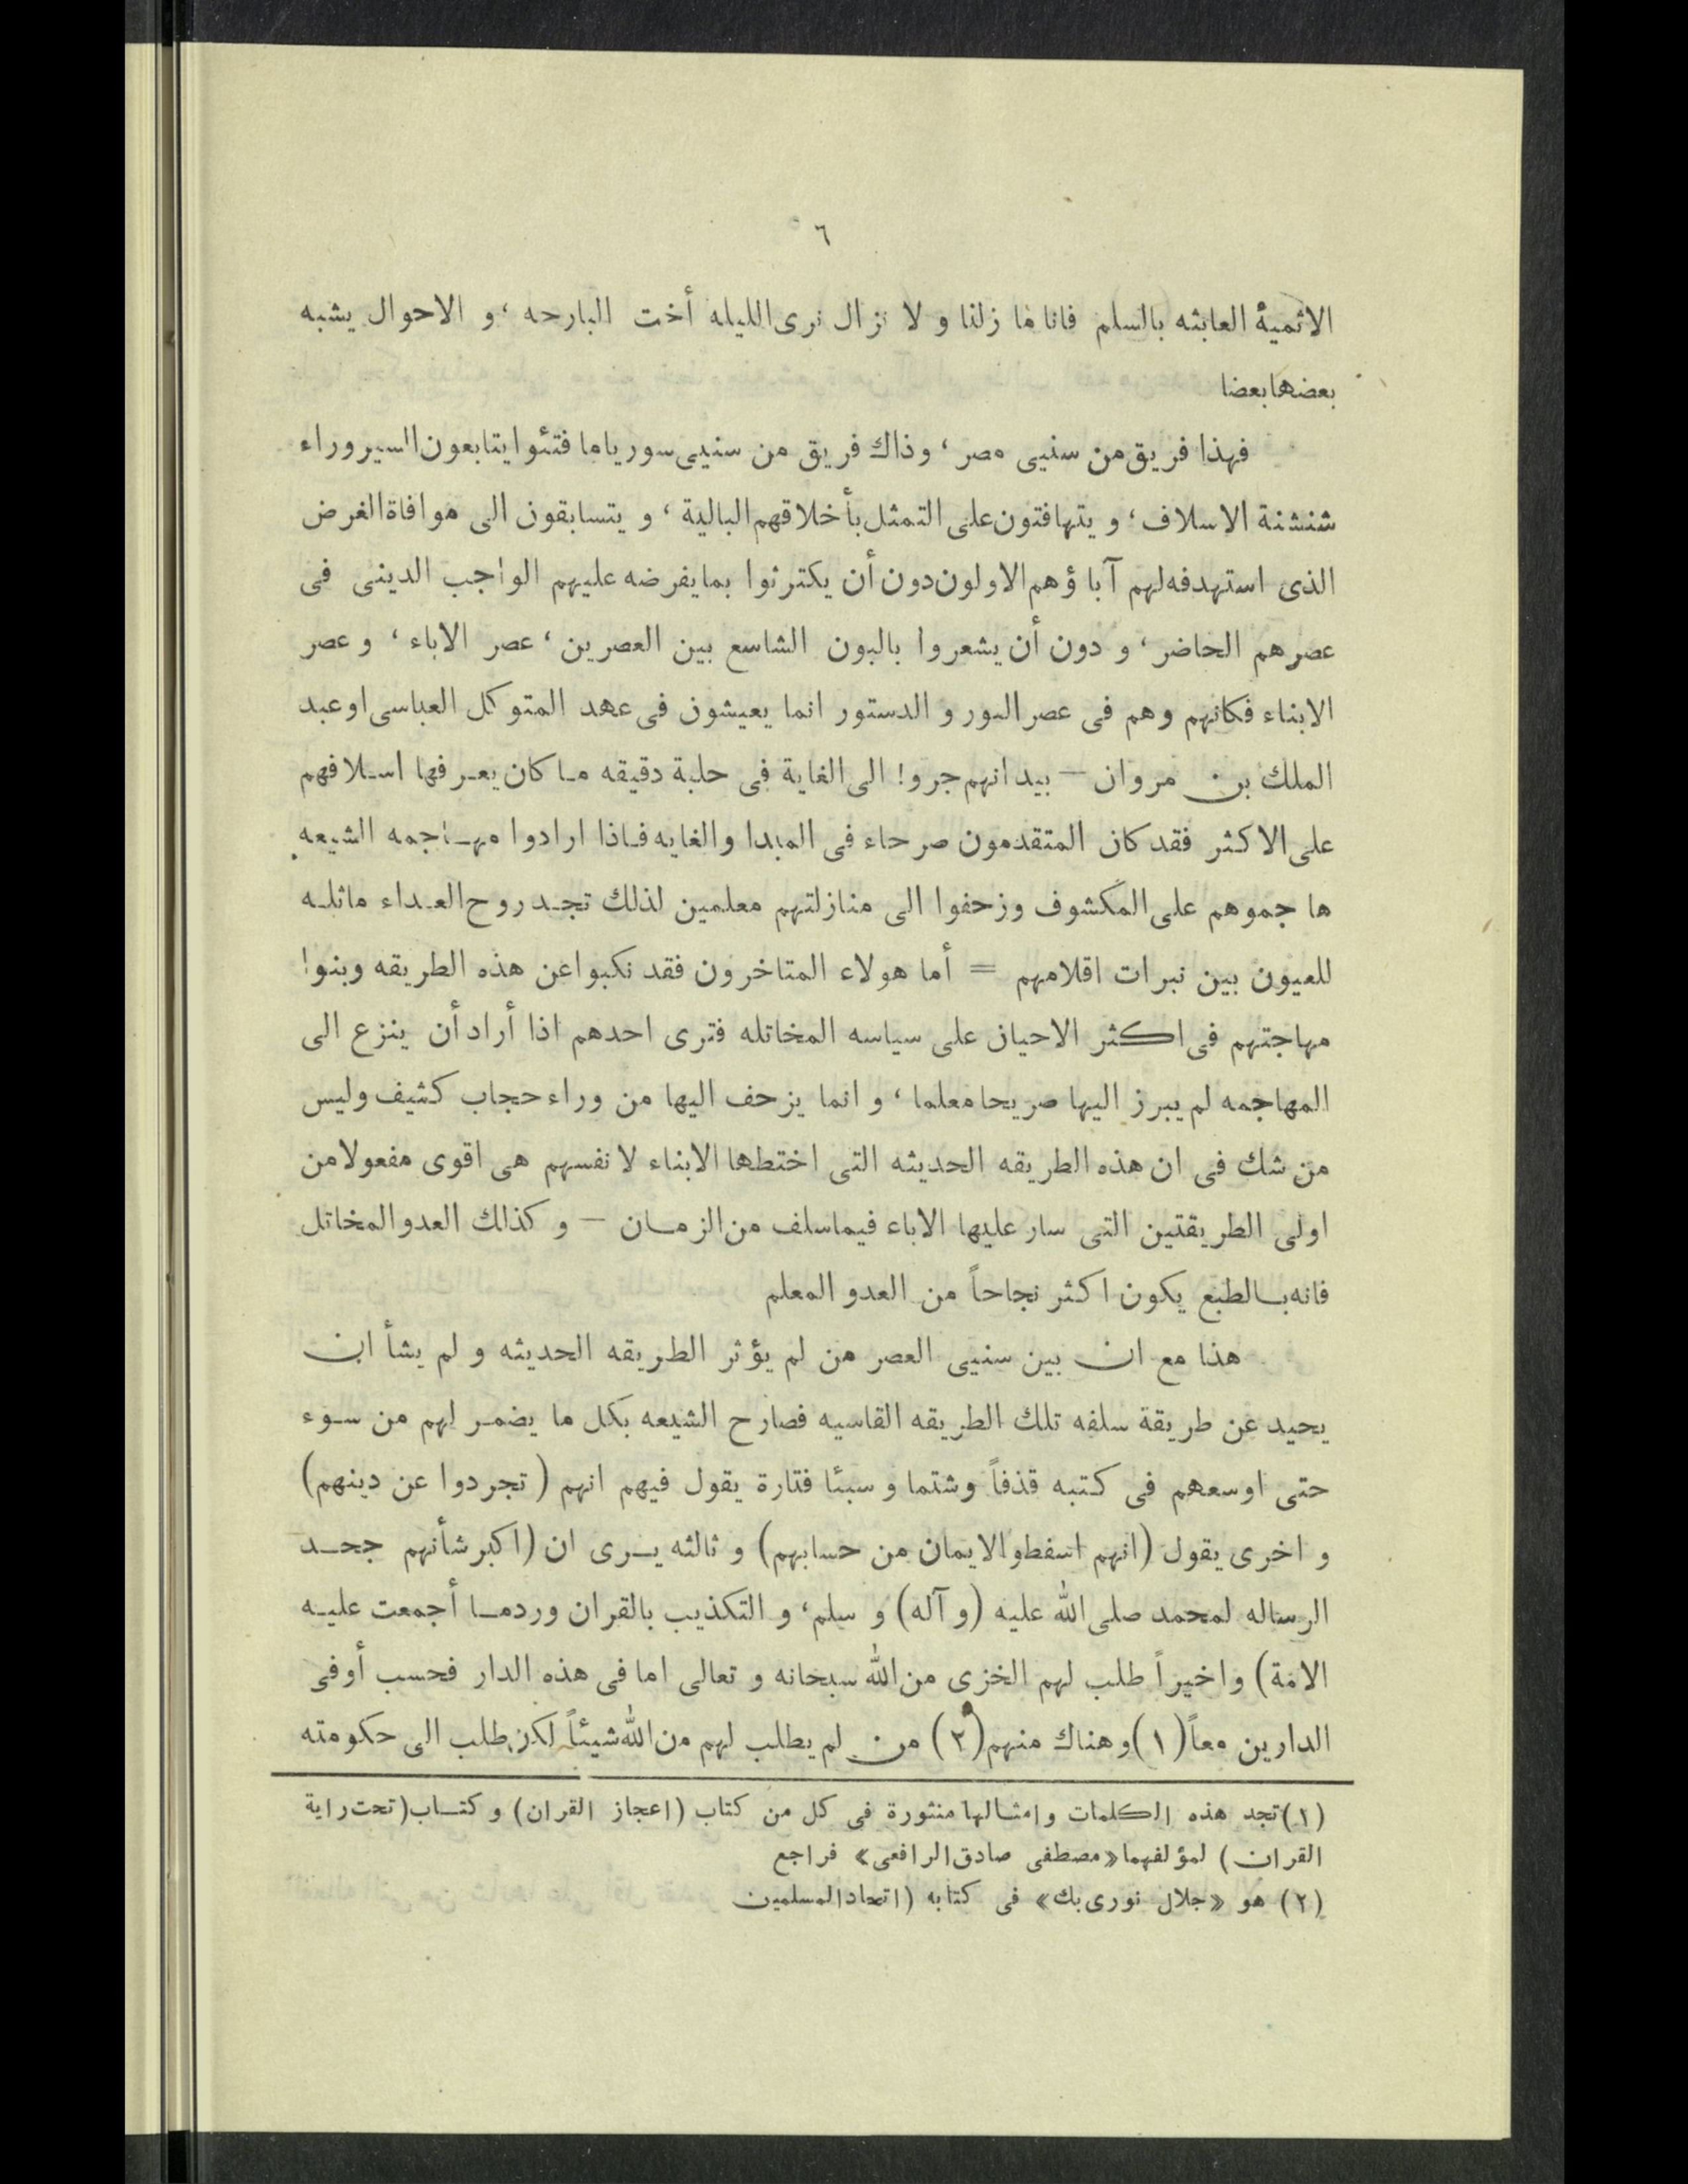 ٦
الاثمية العابثه بالسلم فانا ما زلنا و لا نزال نرى الليله أخت البارحه ، و الاحوال يشبه
بعضها بعضا
فهذا فريق من سنيى مصر ، وذاك فريق من سنيى سوريا ما فتئوا يتابعون السير وراء
شنشنة الاسلاف ، و يتهافتون على التمثل بأخلاقهم البالية ، و يتسابقون الى موافاة الغرض
الذى استهدفه لهم آباؤهم الاولون دون أن يكترثوا بما يفرضه عليهم الواجب الدينى فى
عصرهم الحاضر ، و دون أن يشعروا بالبون الشاسع بين العصرين ، عصر الاباء ، و عصر
الابناء فكانهم وهم فى عصر النور و الدستور انما يعيشون فى عهد المتوكل العباسى او عبد
الملك بن مروان – بيد انهم جروا الى الغاية فى حلبة دقيقه ما كان يعرفها اسلافهم
على الاكثر فقد كان المتقدمون صرحاء فى المبدا والغايه فاذا ارادوا مهاجمه الشيعه
هاجموهم على المكشوف وزحفوا الى منازلتهم معلمين لذلك تجد روح العداء ماثله
للعيون بين نبرات اقلامهم = أما هولاء المتاخرون فقد نكبوا عن هذه الطريقه وبنوا
مهاجتهم فى اكثر الاحيان على سياسه المخاتله فترى احدهم اذا أراد أن ينزع الى
المهاجمه لم يبرز اليها صريحا معلما ، و انما يزحف اليها من وراء حجاب كثيف وليس
من شك فى ان هذه الطريقه الحديثه التى اختطها الابناء لانفسهم هى اقوى مفعولا من
اولى الطريقتين التى سار عليها الاباء فيما سلف من الزمان – و كذلك العدو المخاتل
فانه بالطبع يكون اكثر نجاحاً من العدو المعلم
هذا مع ان بين سنيى العصر من لم يؤثر الطريقه الحديثه و لم يشأ ان
يحيد عن طريقة سلفه تلك الطريقه القاسيه فصارح الشيعه بكل ما يضمر لهم من سوء
حتى اوسعهم فى كتبه قذفاً وشتما و سبئا فتارة يقول فيهم انهم ( تجردوا عن دينهم)
و اخرى يقول (انهم اسفطوا الايمان من حسابهم) و ثالثه يرى ان (اكبر شأنهم جحد
الرساله لمحمد صلى الله عليه (و آله) و سلم ، و التكذيب بالقران وردما أجمعت عليه
الامة) واخيراً طلب لهم الخزى من الله سبحانه و تعالى اما فى هذه الدار فحسب أوفى
الدارين معاً (١) وهناك منهم (٢) من لم يطلب لهم من الله شيئاً لكن طلب الى حكومته
(١) تجد هذه الكلمات وامثالها منثورة فى كل من كتاب (اعجاز القران) و كتاب (تحت راية
القران) لمؤلفهما «مصطفى صادق الرافعى» فراجع
(٢) هو «جلال نورى بك» فى كتابه (اتحاد المسلمين